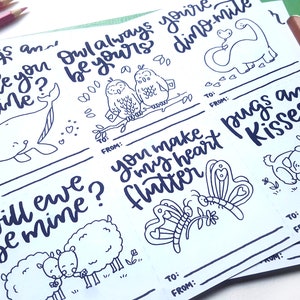 you
mine?
owl always
be yours
TO:
FROM:
you're
dino-mite
TO:
FROM:
will ewe
be mine?
you make
my heart
flutter
TO:
FROM:
pugs and
kisses